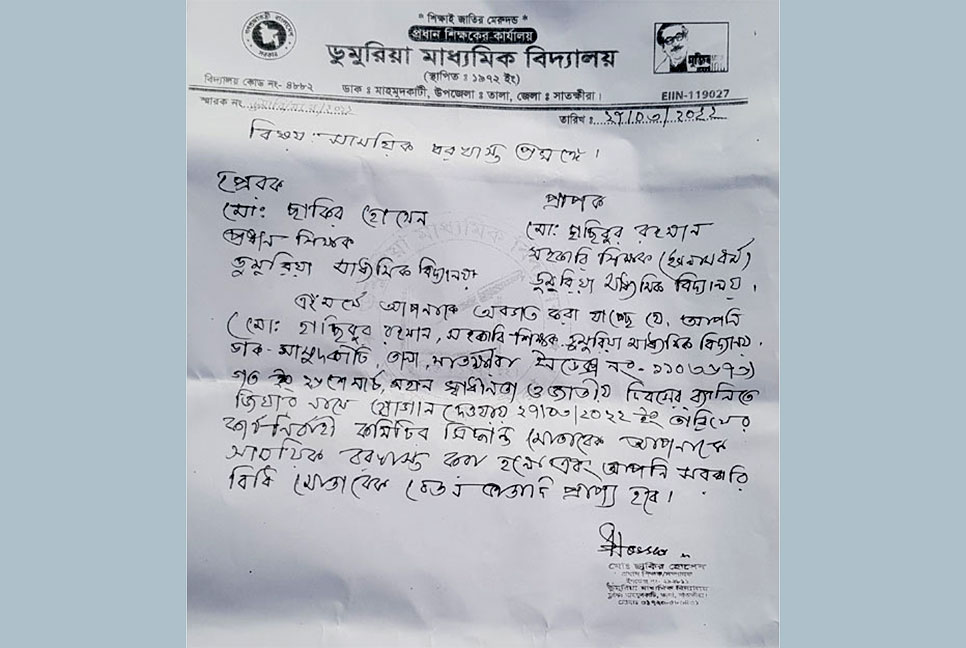 * শিক্ষাই জাতির মেরুদন্ড *
প্রধান শিক্ষকের কার্যালয়
ডুমুরিয়া মাধ্যমিক বিদ্যালয়
(স্থাপিত : ১৯৭২ ইং)
বিদ্যালয় কোড নং- ৪৮৮২
ডাক : মাহমুদকাটী, উপজেলা : তালা, জেলা : সাতক্ষীরা।
EIIN-119027
স্মারক নং
তারিখ : ২৭/০৩/২০২২
বিষয়: সাময়িক বরখাস্ত প্রসঙ্গে।
প্রেরক
মো: জাকির হোসেন
প্রধান শিক্ষক
ডুমুরিয়া মাধ্যমিক বিদ্যালয়
প্রাপক
মো: হাজিবুর রহমান
সহকারি শিক্ষক
ডুমুরিয়া মাধ্যমিক বিদ্যালয়।
এইমর্মে আপনাকে অবগত করা যাচ্ছে যে, আপনি
(মো: হাজিবুর রহমান, সহকারি শিক্ষক, ডুমুরিয়া মাধ্যমিক বিদ্যালয়,
ডাক- তালা, সাতক্ষীরা ইনডেক্স নং-
গত ইং ২৬শে মার্চ, মহান স্বাধীনতা ও জাতীয় দিবসের র‍্যালিতে
জিয়ার নামে স্লোগান দেওয়ায় ২৭/০৩/২০২২ ইং তারিখের
কার্যনির্বাহী কমিটির সিদ্ধান্ত মোতাবেক আপনাকে
সাময়িক বরখাস্ত করা হলো এবং আপনি সরকারি
বিধি মোতাবেক বেতন ভাতাদি প্রাপ্য হবে।
মোঃ জাকির হোসেন
ডুমুরিয়া মাধ্যমিক বিদ্যালয়